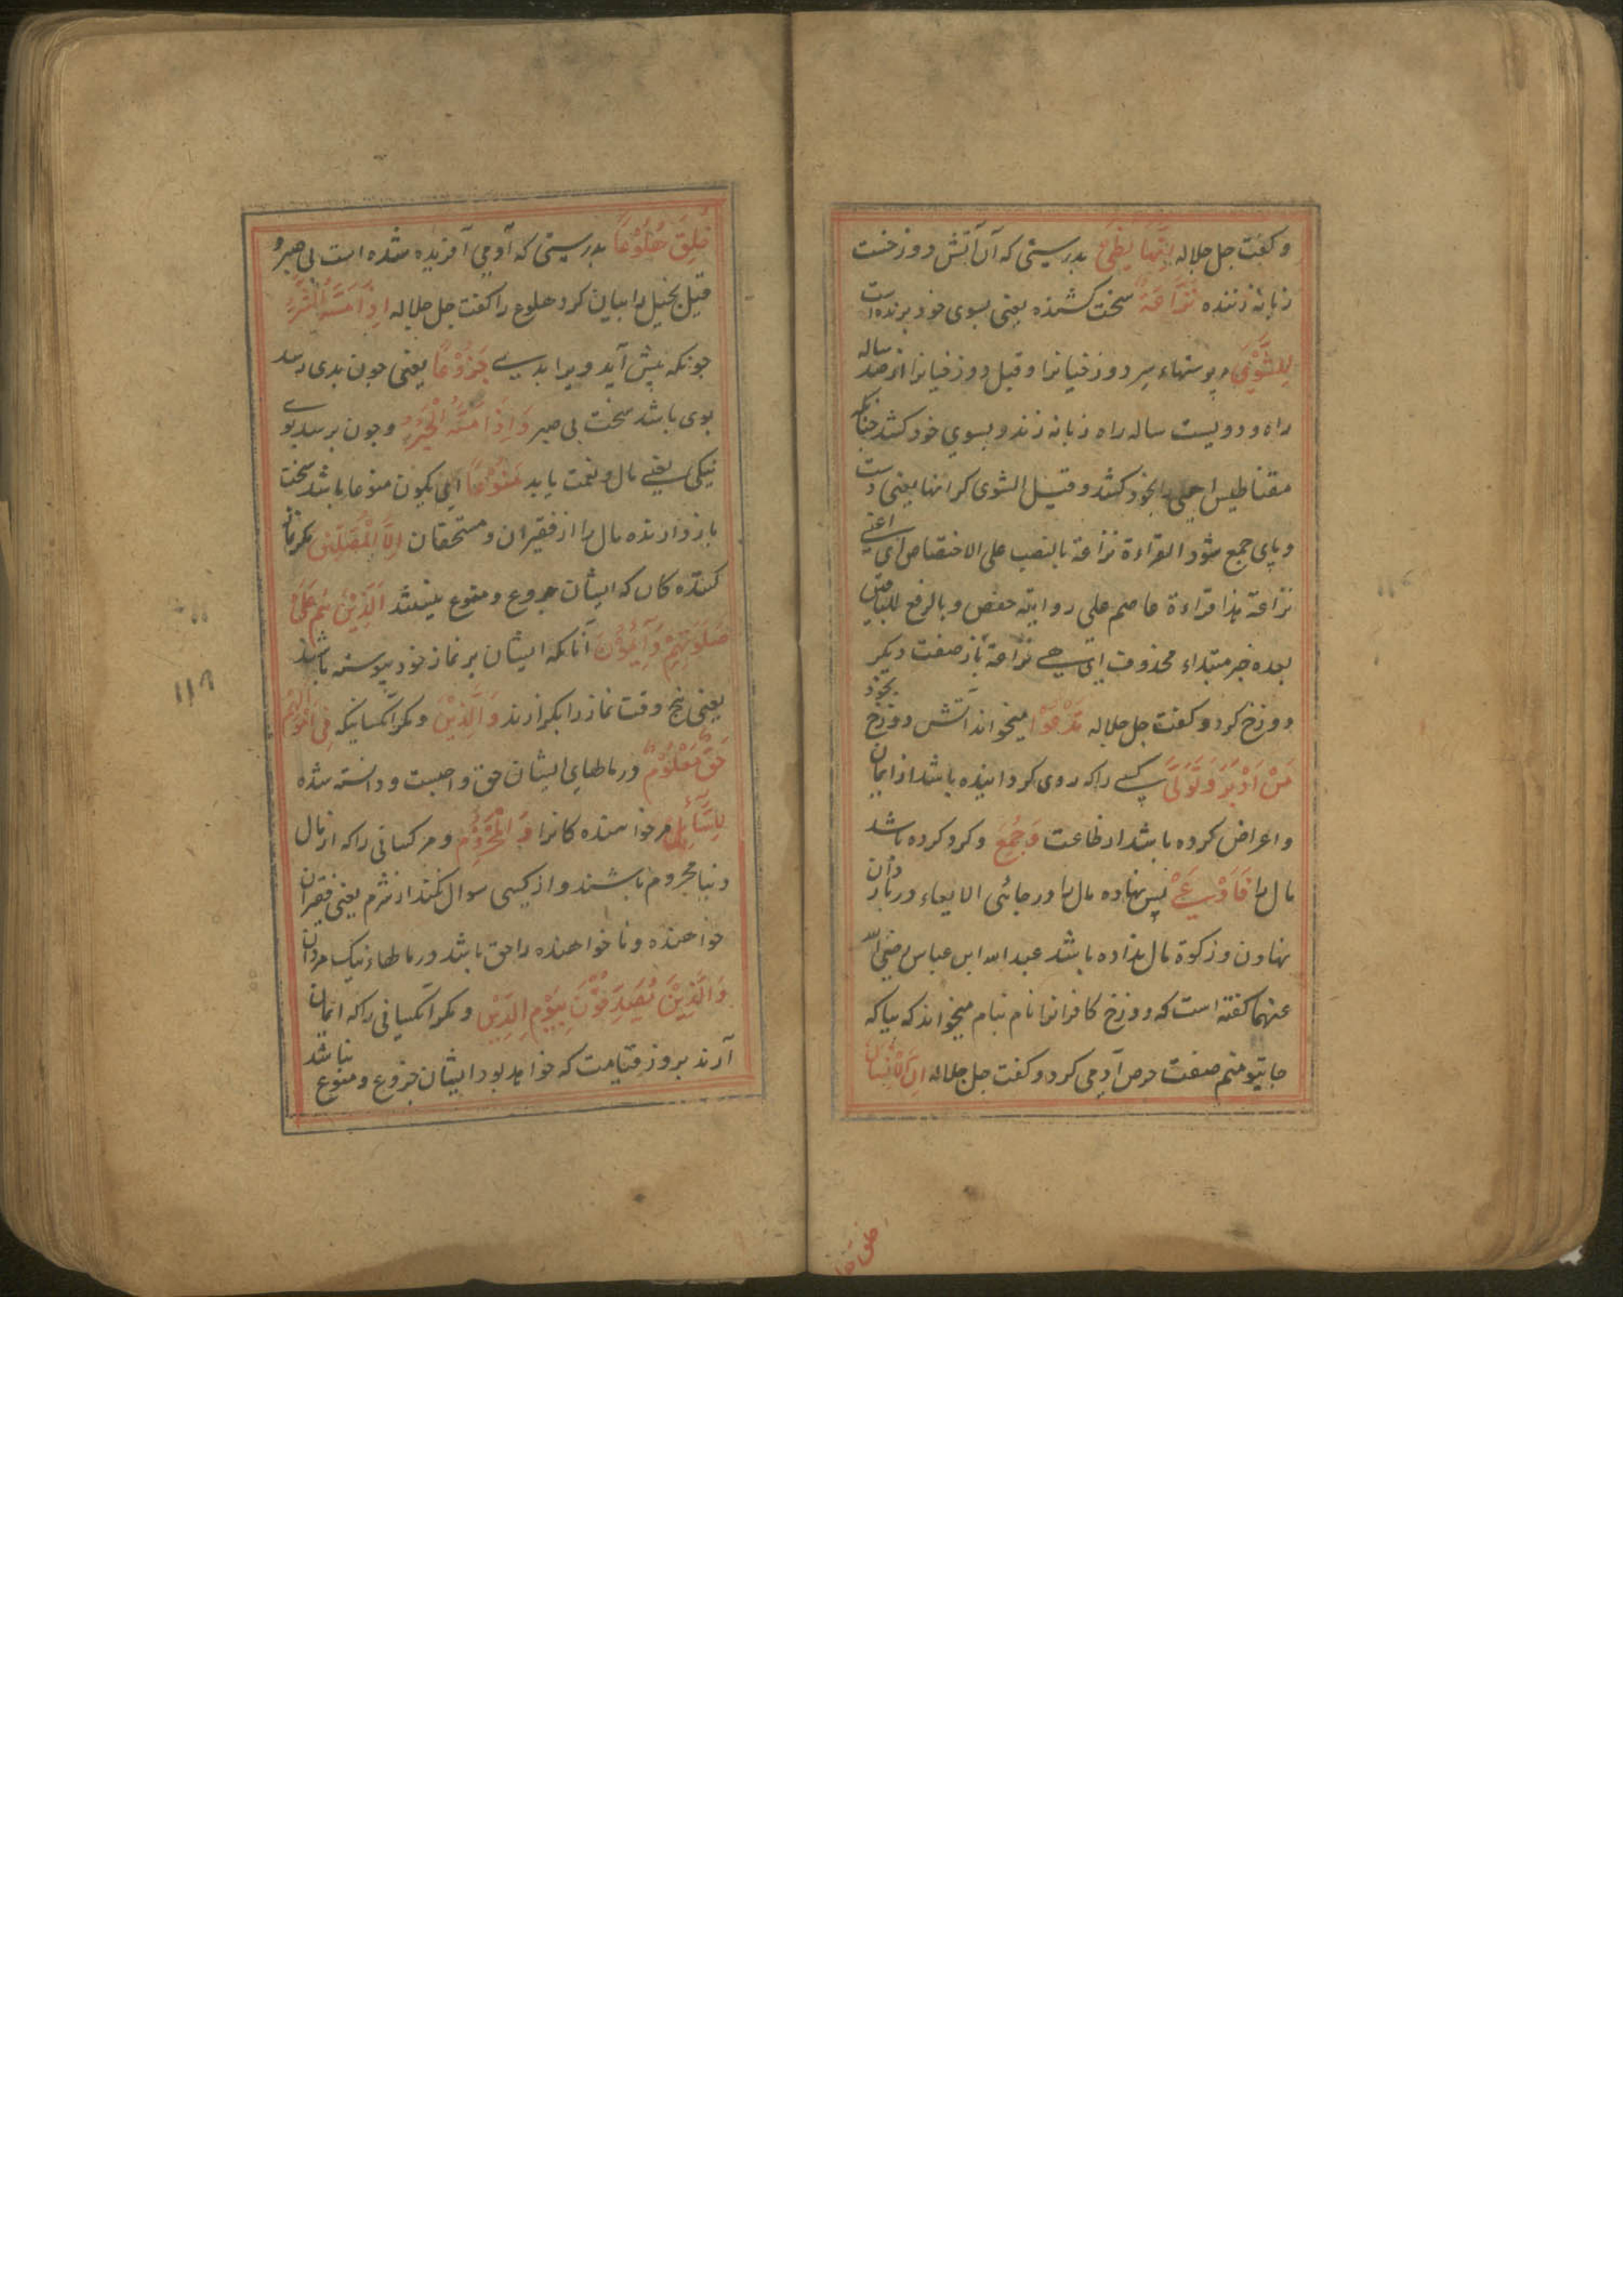 و کفت جل جلاله اِنَّهَا لَظٰی بدرستی که آن آتش دوزخست
زبانه زننده نَزَّاعَةً سخت کشنده یعنی بسوی خود برنده است
لِلشَّوٰی پوستهاء سر دوزخیانرا و قیل دوزخیانرا از صد ساله
راه و دویست ساله راه زبانه زند و بسوی خود کشد چنانکه
مقناطیس بخود کشد و قیل الشوی کرانها یعنی دست
و پای جمع شود القراءة نزاعة بالنصب علی الاختصاص ای اعنی
نزاعة هذا قراءة عاصم علی روایة حفص و بالرفع للباقین
بعده خبر مبتداء محذوف ای هی نزاعة باز صفت دیکر
دوزخ کرد و کفت جل جلاله تَدْعُوْا میخواند آتش دوزخ بخود
مَنْ اَدْبَرَ وَتَوَلّٰی کسی را که روی کردانیده باشد از ایمان
و اعراض کرده باشد از طاعت وَجَمَعَ و کرد کرده باشد
مال را فَاَوْعٰی پس نهاده مال را در جائی الایعاء در باردان
نهادن و زکوة مال نداده باشد عبد الله ابن عباس رضی الله
عنهما کفته است که دوزخ کافرانرا نام بنام میخواند که بیا که
جای تو منم صفت حرص آدمی کرد و کفت جل جلاله اِنَّ الْاِنْسَانَ
خلق
خُلِقَ هَلُوْعًا بدرستی که آدمی آفریده شده است بی صبر و
قیل بخیل را بیان کرد هلوع را کفت جل جلاله اِذَا مَسَّهُ الشَّرُّ
چونکه پیش آید ویرا بدی جَزُوْعًا یعنی چون بدی رسد
بوی باشد سخت بی صبر وَاِذَا مَسَّهُ الْخَيْرُ و چون برسد بوی
نیکی یعنی مال و نعمت یابد مَنُوْعًا ای یکون منوعا باشد سخت
باز دارنده مال را از فقیران و مستحقان اِلَّا الْمُصَلِّيْنَ مکر نماز
کننده کان که ایشان جزوع و منوع نیستند اَلَّذِيْنَ هُمْ عَلٰی
صَلٰوتِهِمْ دَآئِمُوْنَ آنانکه ایشان بر نماز خود پیوسته باشند
یعنی پنج وقت نماز را بکزارند وَالَّذِيْنَ و مکر آنکسانیکه فِیْ اَمْوَالِهِمْ
حَقٌّ مَعْلُوْمٌ در مالهای ایشان حق واجبست و دانسته شده
لِلسَّآئِلِ مر خواهنده کانرا وَالْمَحْرُوْمِ و مر کسانی را که از مال
دنیا محروم باشند و از کسی سوال نکنند از شرم یعنی فقیران
خواهنده و ناخواهنده را حق باشد در مالهاء نیک مردان
وَالَّذِيْنَ يُصَدِّقُوْنَ بِيَوْمِ الدِّيْنِ و مکر آنکسانی را که ایمان
آرند بروز قیامت که خواهد بود ایشان جزوع و منوع نباشد
۱۱۹